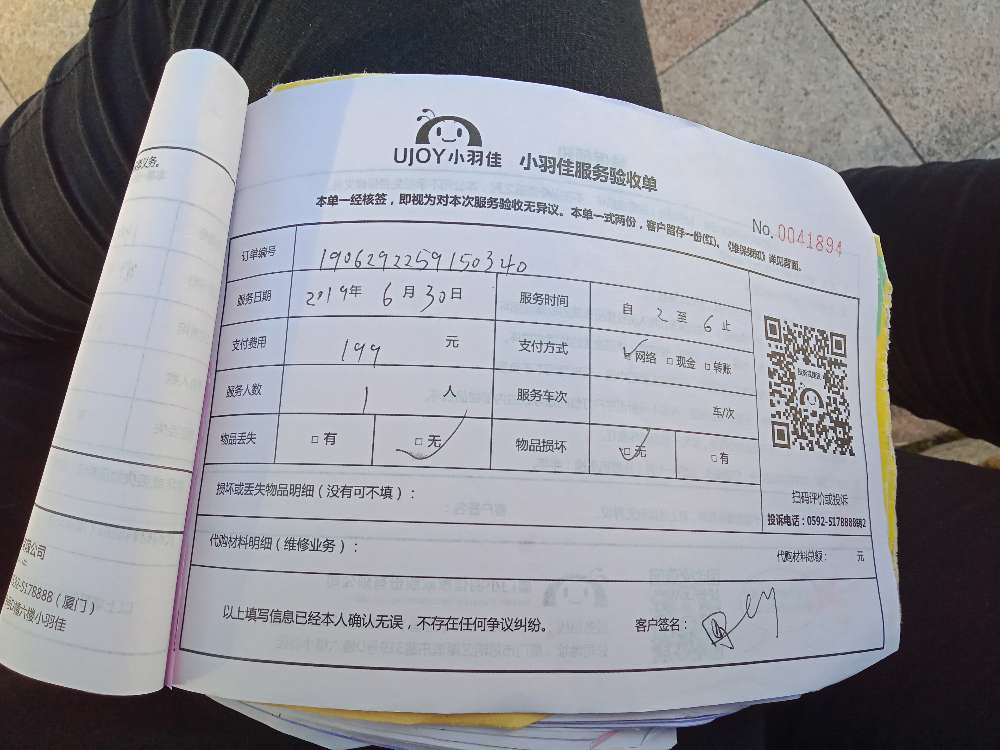 UJOY小羽佳 小羽佳服务验收单
本单一经核签，即视为对本次服务验收无异议。本单一式两份，客户留存一份(红)。《维保须知》详见背面。
No.0041894
订单编号 1906292259150340
服务日期 2019年 6月30日 服务时间 自 2 至 6 止
支付费用 199 元 支付方式 ☑网络 □现金 □转账
服务人数 1 人 服务车次 车/次
物品丢失 □有 ☑无 物品损坏 ☑无 □有
损坏或丢失物品明细（没有可不填）：
扫码评价或投诉
投诉电话：0592-5178888
代购材料明细（维修业务）：
代购材料总额： 元
以上填写信息已经本人确认无误，不存在任何争议纠纷。
客户签名：
义务。
限公司
-5178888（厦门）
六楼小羽佳